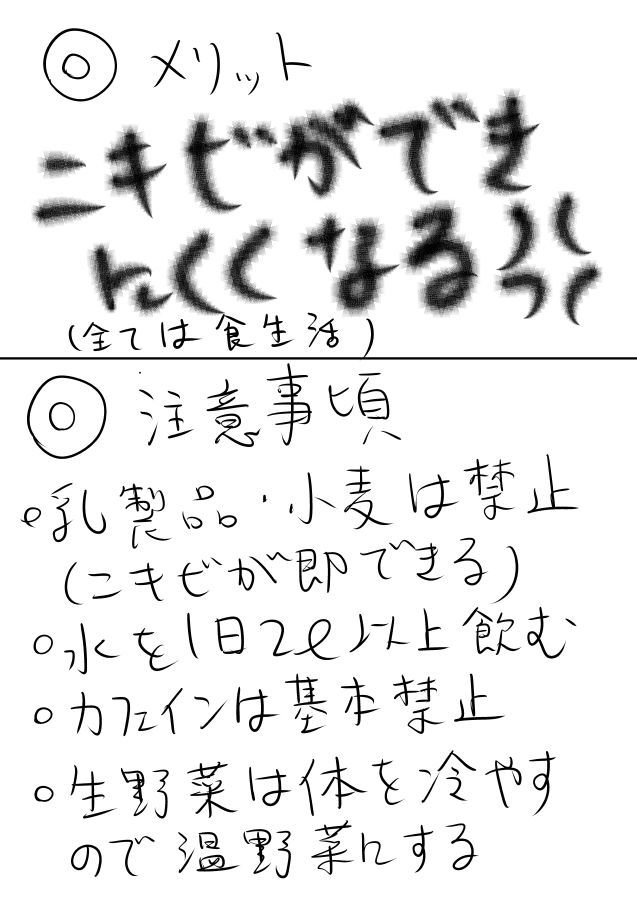 ◎ メリット
ニキビができ
にくくなる!!
(全ては食生活)
◎ 注意事項
○乳製品・小麦は禁止
(ニキビが即できる)
○水を1日2ℓ以上飲む
○カフェインは基本禁止
○生野菜は体を冷やす
ので温野菜にする